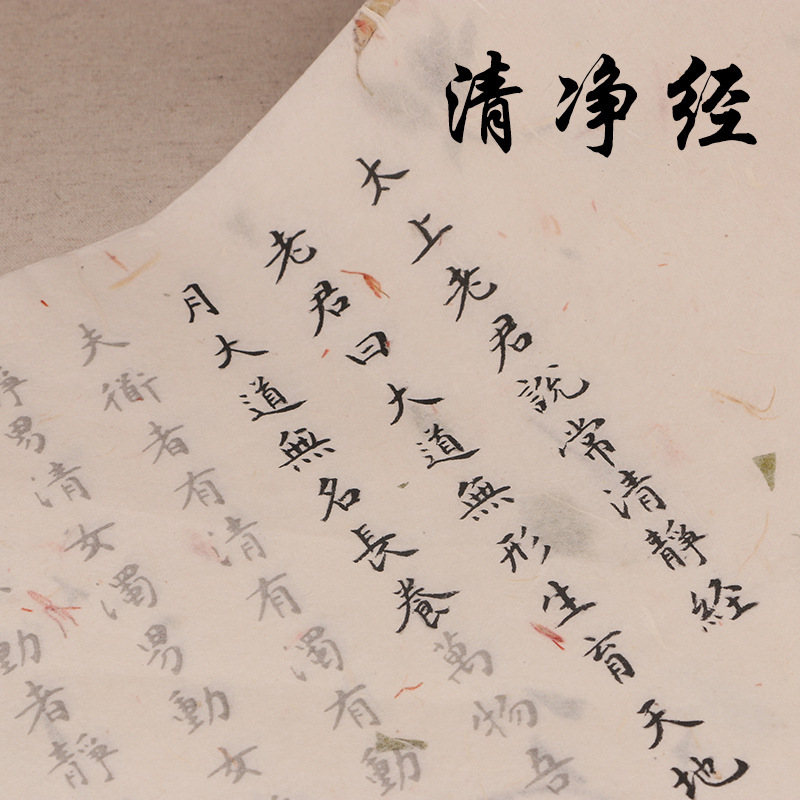 清净经
太上老君說常清靜經
老君曰大道無形生育天地
月大道無名長養萬物吾
夫衜者有清有濁有動
靜男清女濁男動女
動者靜